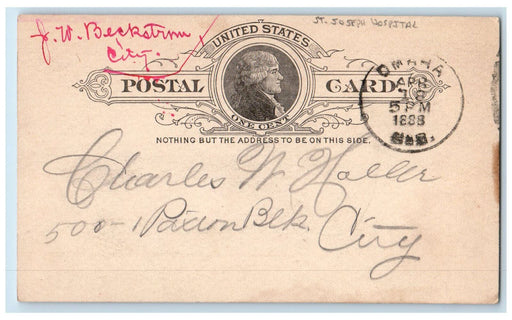 ST. JOSEPH HOSPITAL
J. W. Beckstrom
City.
UNITED STATES
POSTAL CARD
ONE CENT
NOTHING BUT THE ADDRESS TO BE ON THIS SIDE.
OMAHA
APR
5 PM
1888
Charles W. Haller
500-1 Paxton Blk.
City